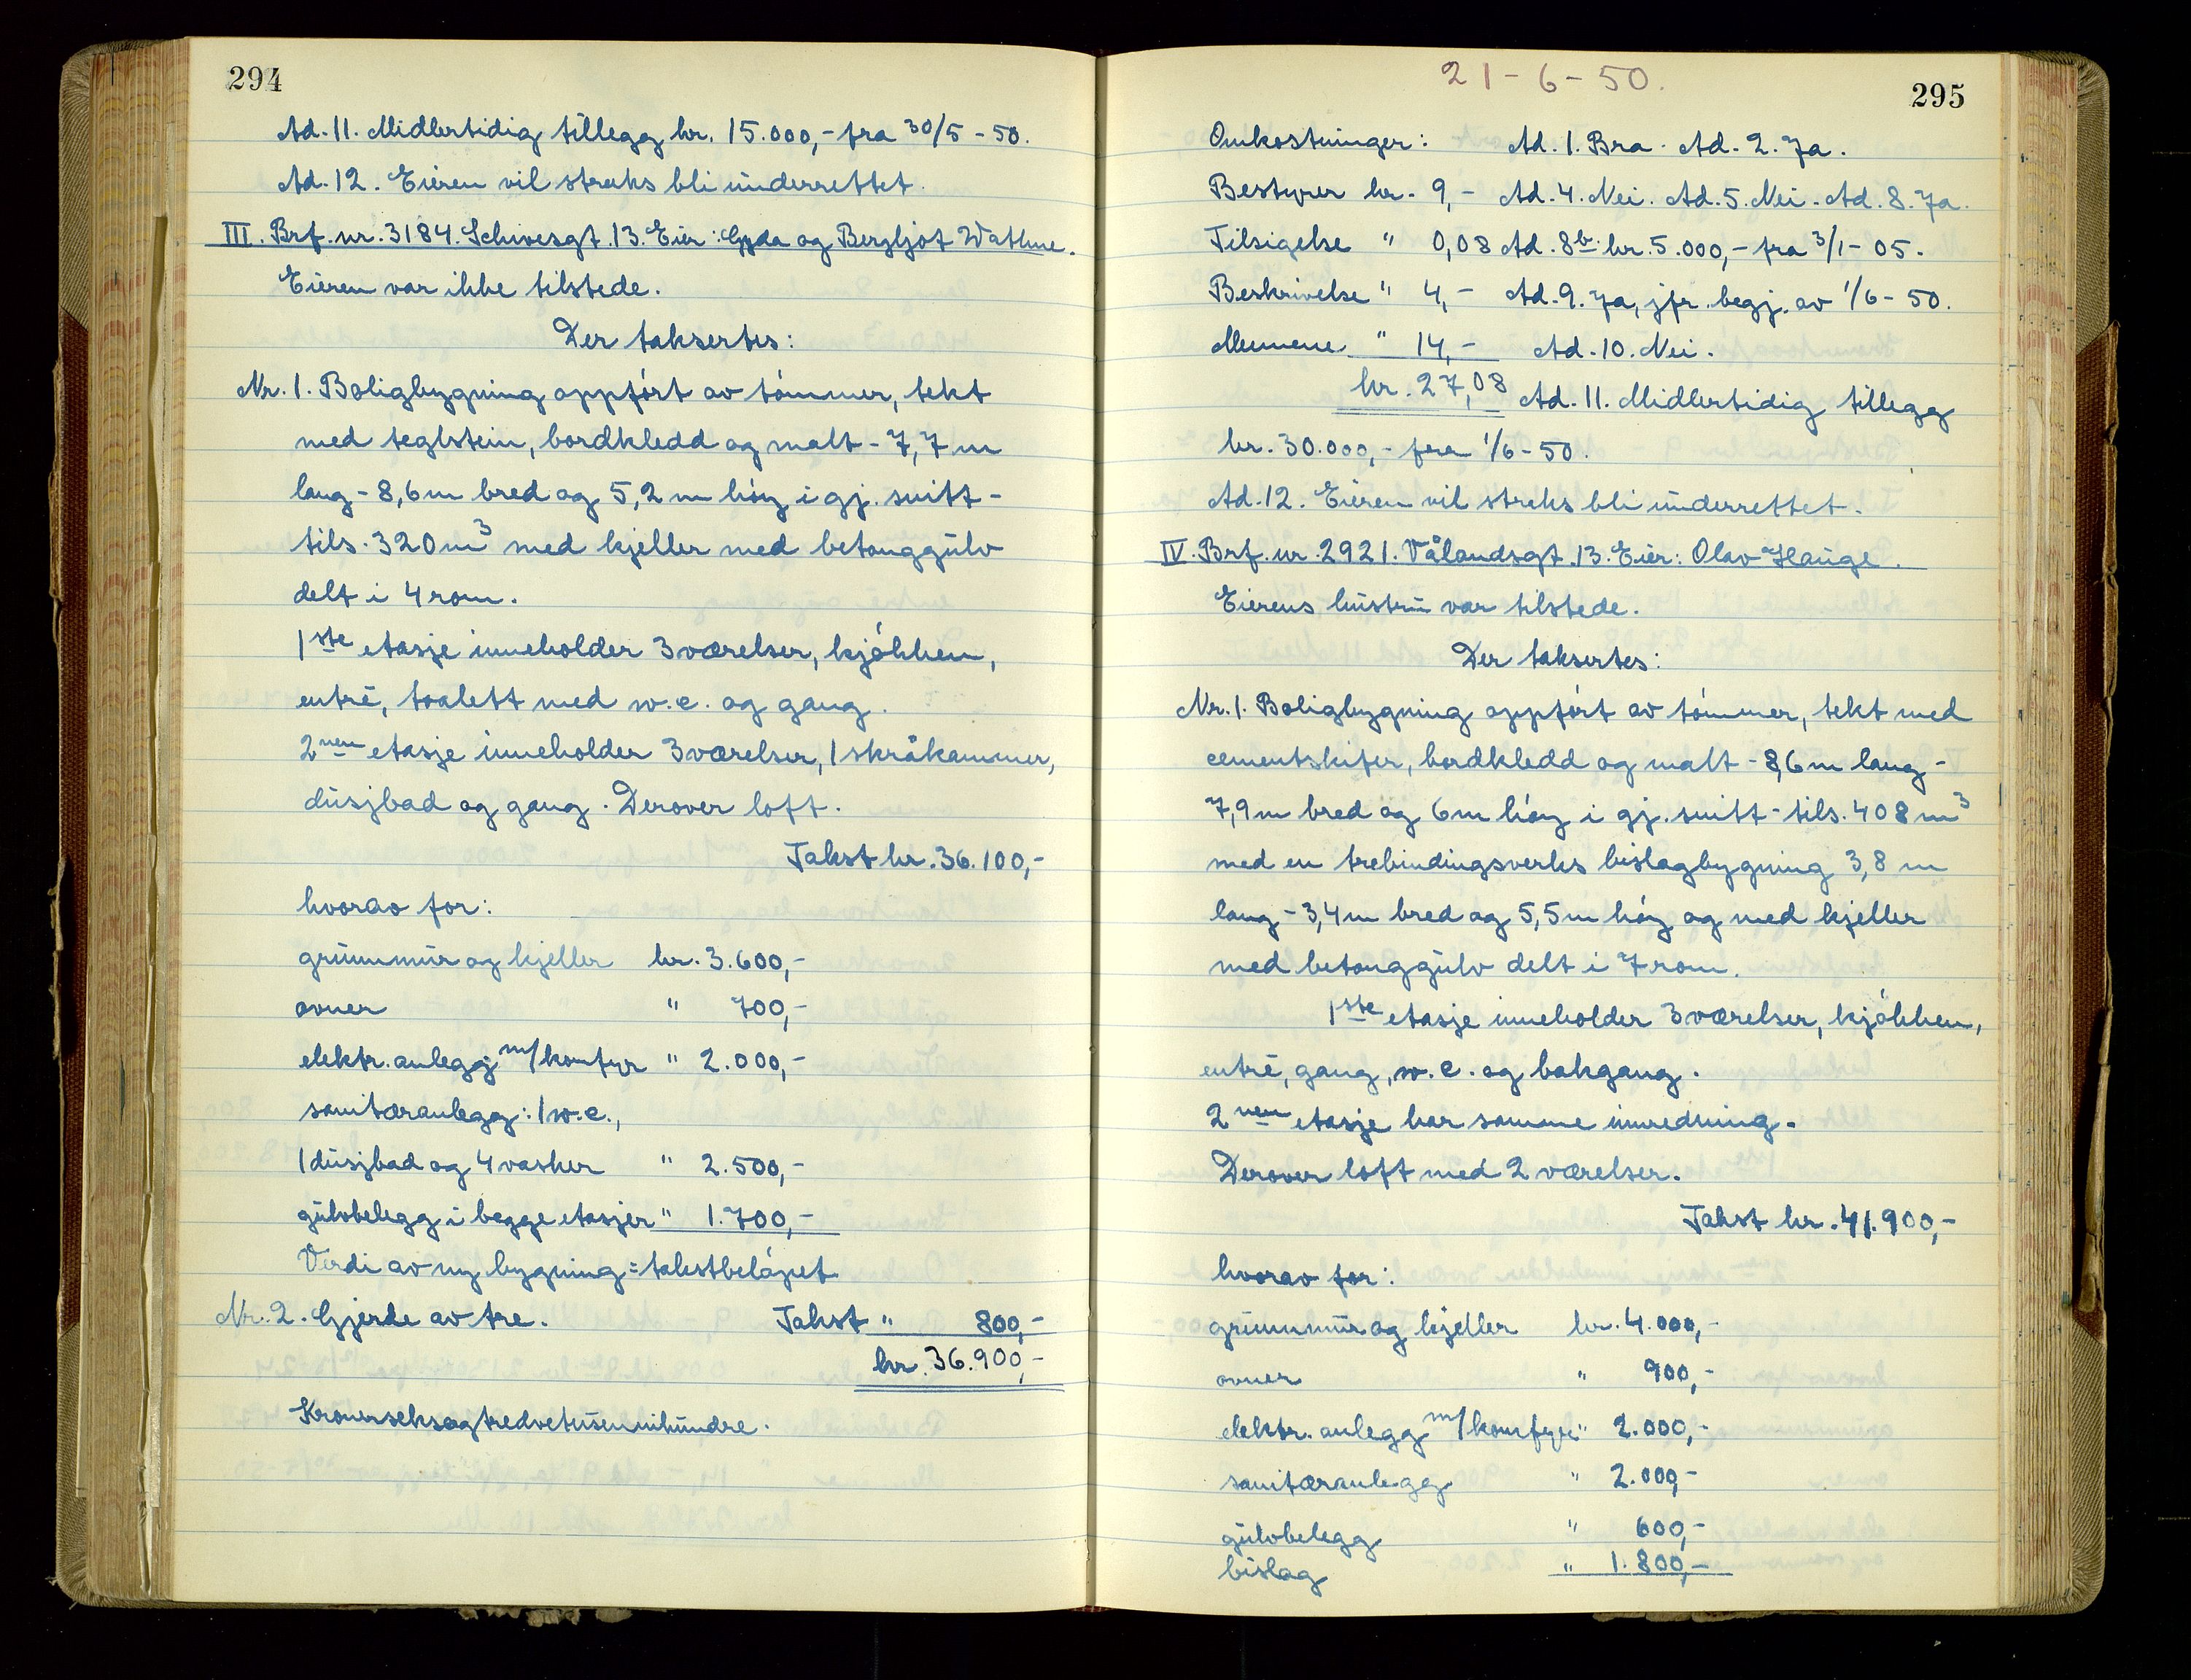 294
Ad. 11. Midlertidig tillegg kr. 15.000,- fra 30/5 - 50.
Ad. 12. Eieren vil straks bli underrettet.
III. Brf. nr. 3184. Schivesgt. 13. Eier: Gyda og Bergljot Wathne.
Eieren var ikke tilstede.
Der taksertes:
Nr. 1. Boligbygning oppført av tømmer, tekt
med teglstein, bordkledd og malt - 7,7 m
lang - 8,6 m bred og 5,2 m høy i gj. snitt -
tils. 320 m³ med kjeller med betonggulv
delt i 4 rom.
1ste etasje inneholder 3 værelser, kjøkken,
entré, toalett med w.c. og gang.
2nen etasje inneholder 3 værelser, 1 skråkammer,
dusjbad og gang. Derover loft.
Takst kr. 36.100,-
hvorav for:
grunnmur og kjeller kr. 3.600,-
ovner " 700,-
elektr. anlegg m/komfyr " 2.000,-
sanitæranlegg: 1 w.c.,
1 dusjbad og 4 vasker " 2.500,-
gulvbelegg i begge etasjer " 1.700,-
Verdi av ny bygning = takstbeløpet.
Nr. 2. Gjerde av tre. Takst " 800,-
kr. 36.900,-
Kronerseksogtredvetusennihundre.
21 - 6 - 50.
295
Omkostninger: Ad. 1. Bra. Ad. 2. Ja.
Bestyrer kr. 9,- Ad. 4. Nei. Ad. 5. Nei. Ad. 8. Ja.
Tilsigelse " 0,08 Ad. 8b. kr. 5.000,- fra 3/1 - 05.
Beskrivelse " 4,- Ad. 9. Ja, jfr. begj. av 1/6 - 50.
Mennene " 14,- Ad. 10. Nei.
kr. 27,08 Ad. 11. Midlertidig tillegg
kr. 30.000,- fra 1/6 - 50.
Ad. 12. Eieren vil straks bli underrettet.
IV. Brf. nr. 2921. Vålandsgt. 13. Eier: Olav Hauge.
Eierens hustru var tilstede.
Der taksertes:
Nr. 1. Boligbygning oppført av tømmer, tekt med
cementskifer, bordkledd og malt - 8,6 m lang -
7,9 m bred og 6 m høy i gj. snitt - tils. 408 m³
med en trebindingsverks bislagbygning 3,8 m
lang - 3,4 m bred og 5,5 m høy og med kjeller
med betonggulv delt i 7 rom.
1ste etasje inneholder 3 værelser, kjøkken,
entré, gang, w.c. og bakgang.
2nen etasje har samme innredning.
Derover loft med 2 værelser.
Takst kr. 41.900,-
hvorav for:
grunnmur og kjeller kr. 4.000,-
ovner " 900,-
elektr. anlegg m/komfyr " 2.000,-
sanitæranlegg " 2.000,-
gulvbelegg " 600,-
bislag " 1.800,-